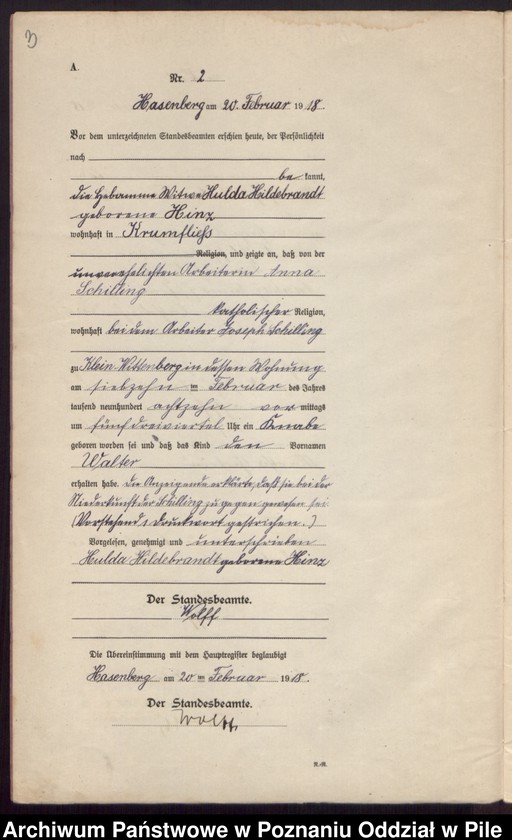 3
A.
Nr. 2
Hasenberg am 20. Februar 1918.
Vor dem unterzeichneten Standesbeamten erschien heute, der Persönlichkeit
nach
be kannt,
die Hebamme Witwe Hulda Hildebrandt
geborene Hinz
wohnhaft in Krumfliess
Religion, und zeigte an, daß von der
unverehelichten Arbeiterin Anna
Schilling
katholischer Religion,
wohnhaft bei dem Arbeiter Joseph Schilling
zu Klein-Wittenberg in dessen Wohnung
am siebzehn ten Februar des Jahres
tausend neunhundert achtzehn vor mittags
um fünfdreiviertel Uhr ein Knabe
geboren worden sei und daß das Kind den Vornamen
Walter
erhalten habe. Die Anzeigende erklärte, daß sie bei der
Niederkunft der Schilling zugegen gewesen sei
(Vorstehend 1 Druckwort gestrichen.)
Vorgelesen, genehmigt und unterschrieben
Hulda Hildebrandt geborene Hinz
Der Standesbeamte.
Wolff
Die Übereinstimmung mit dem Hauptregister beglaubigt
Hasenberg am 20 ten Februar 1918.
Der Standesbeamte.
Wolff
Archiwum Państwowe w Poznaniu Oddział w Pile